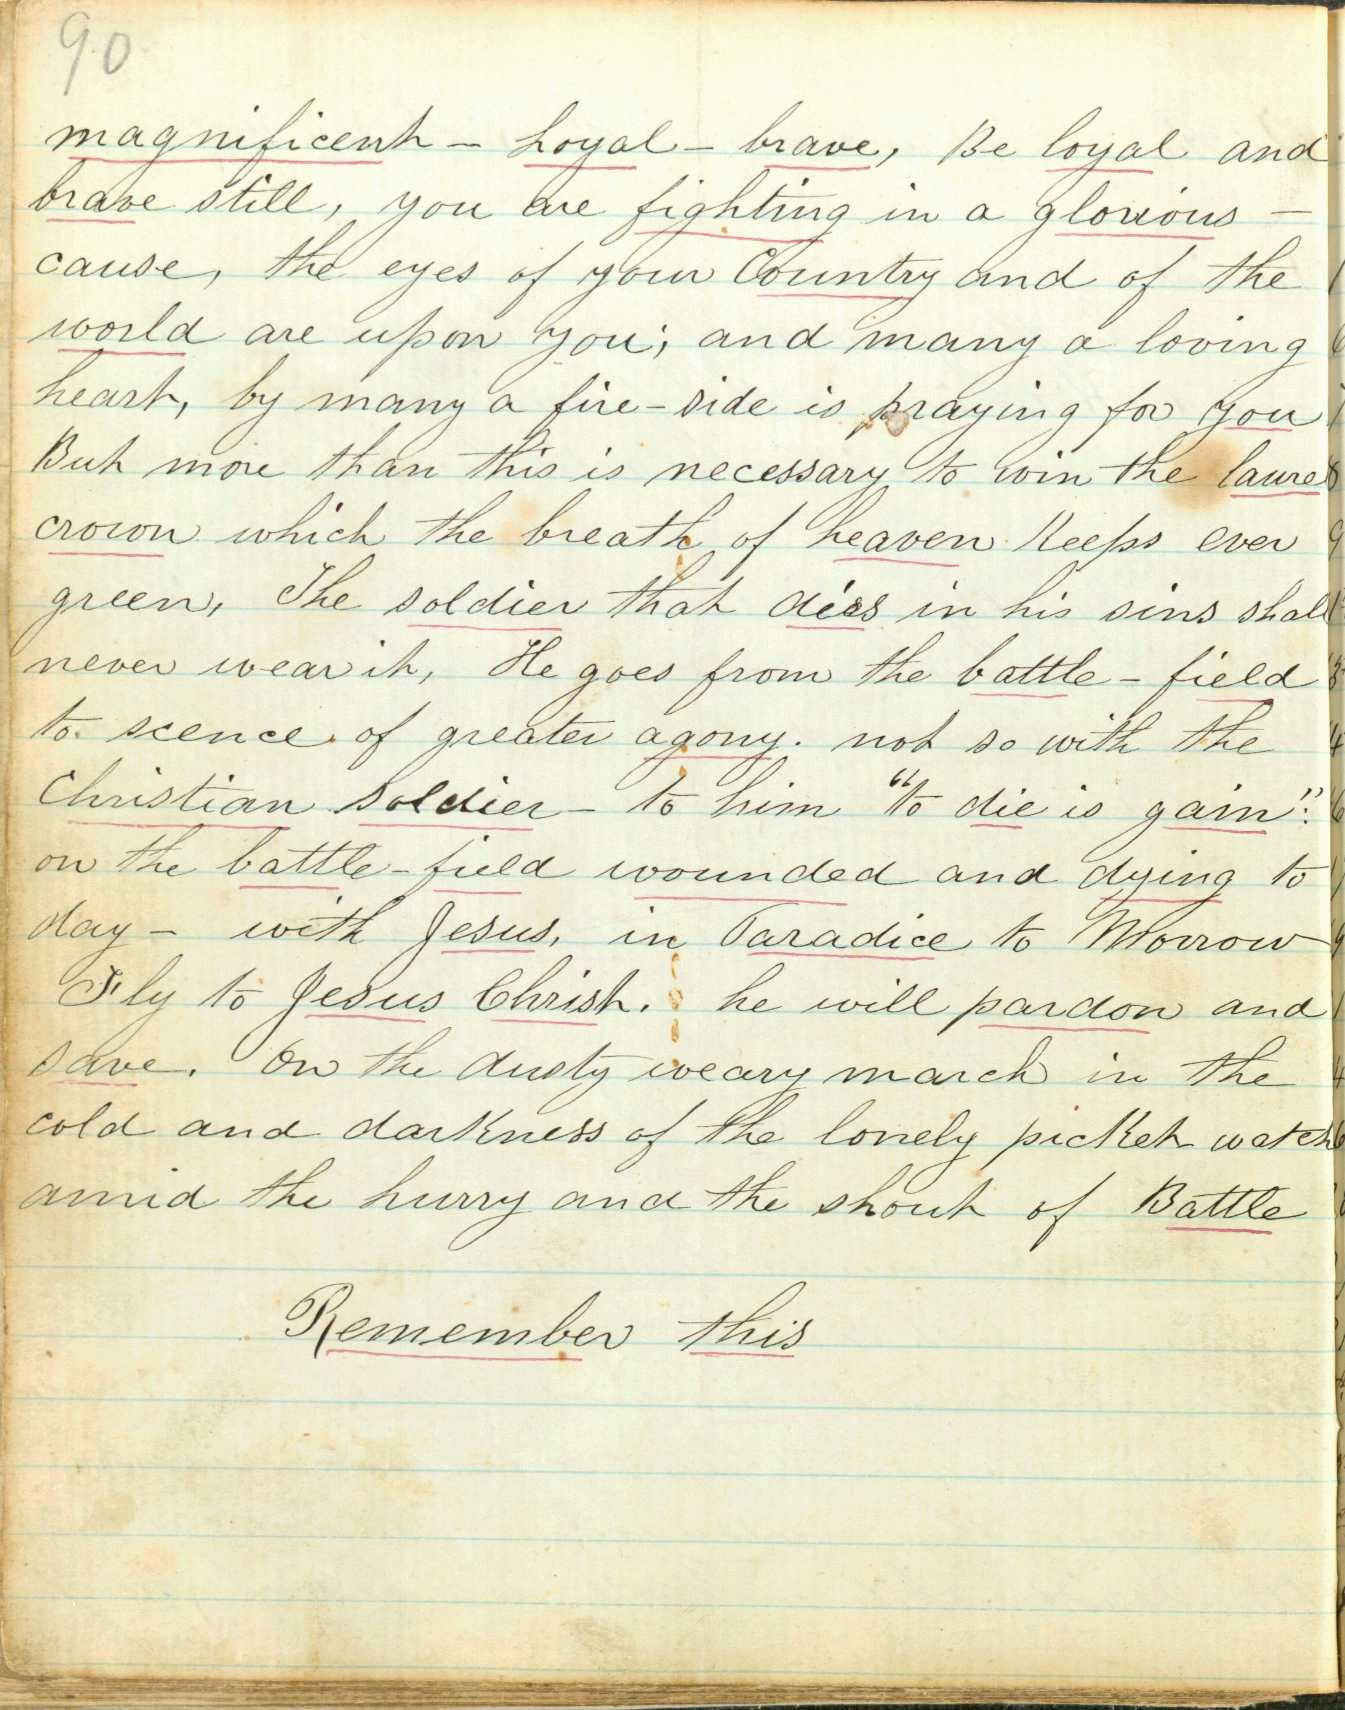 90
magnificent - Loyal - brave, Be loyal and
brave still, you are fighting in a glorious -
cause, the eyes of your Country and of the
world are upon you; and many a loving
heart, by many a fire-side is praying for you
But more than this is necessary to win the laurel
crown which the breath of heaven Keeps ever
green, The soldier that dies in his sins shall
never wear it, He goes from the battle-field
to scence of greater agony. not so with the
Christian Soldier - to him "to die is gain":
on the battle-field wounded and dying to
day - with Jesus, in Paradice to Morrow
Fly to Jesus Christ. he will pardon and
save. On the dusty weary march in the
cold and darkness of the lonely picket watch
amid the hurry and the shout of Battle
Remember this